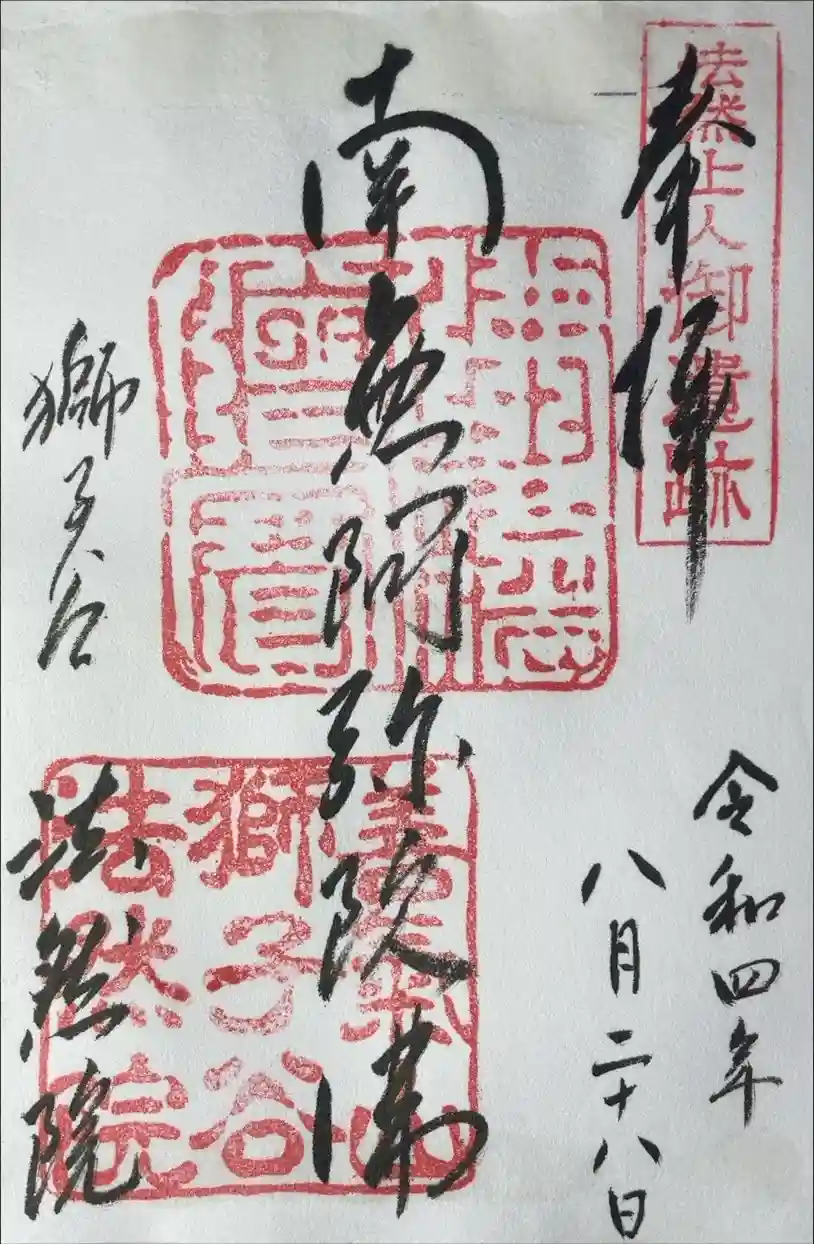 法然上人御遺跡
奉拝
令和四年
八月二十八日
南無阿弥陀佛
善氣山
獅子谷
法然院
獅子谷
法然院